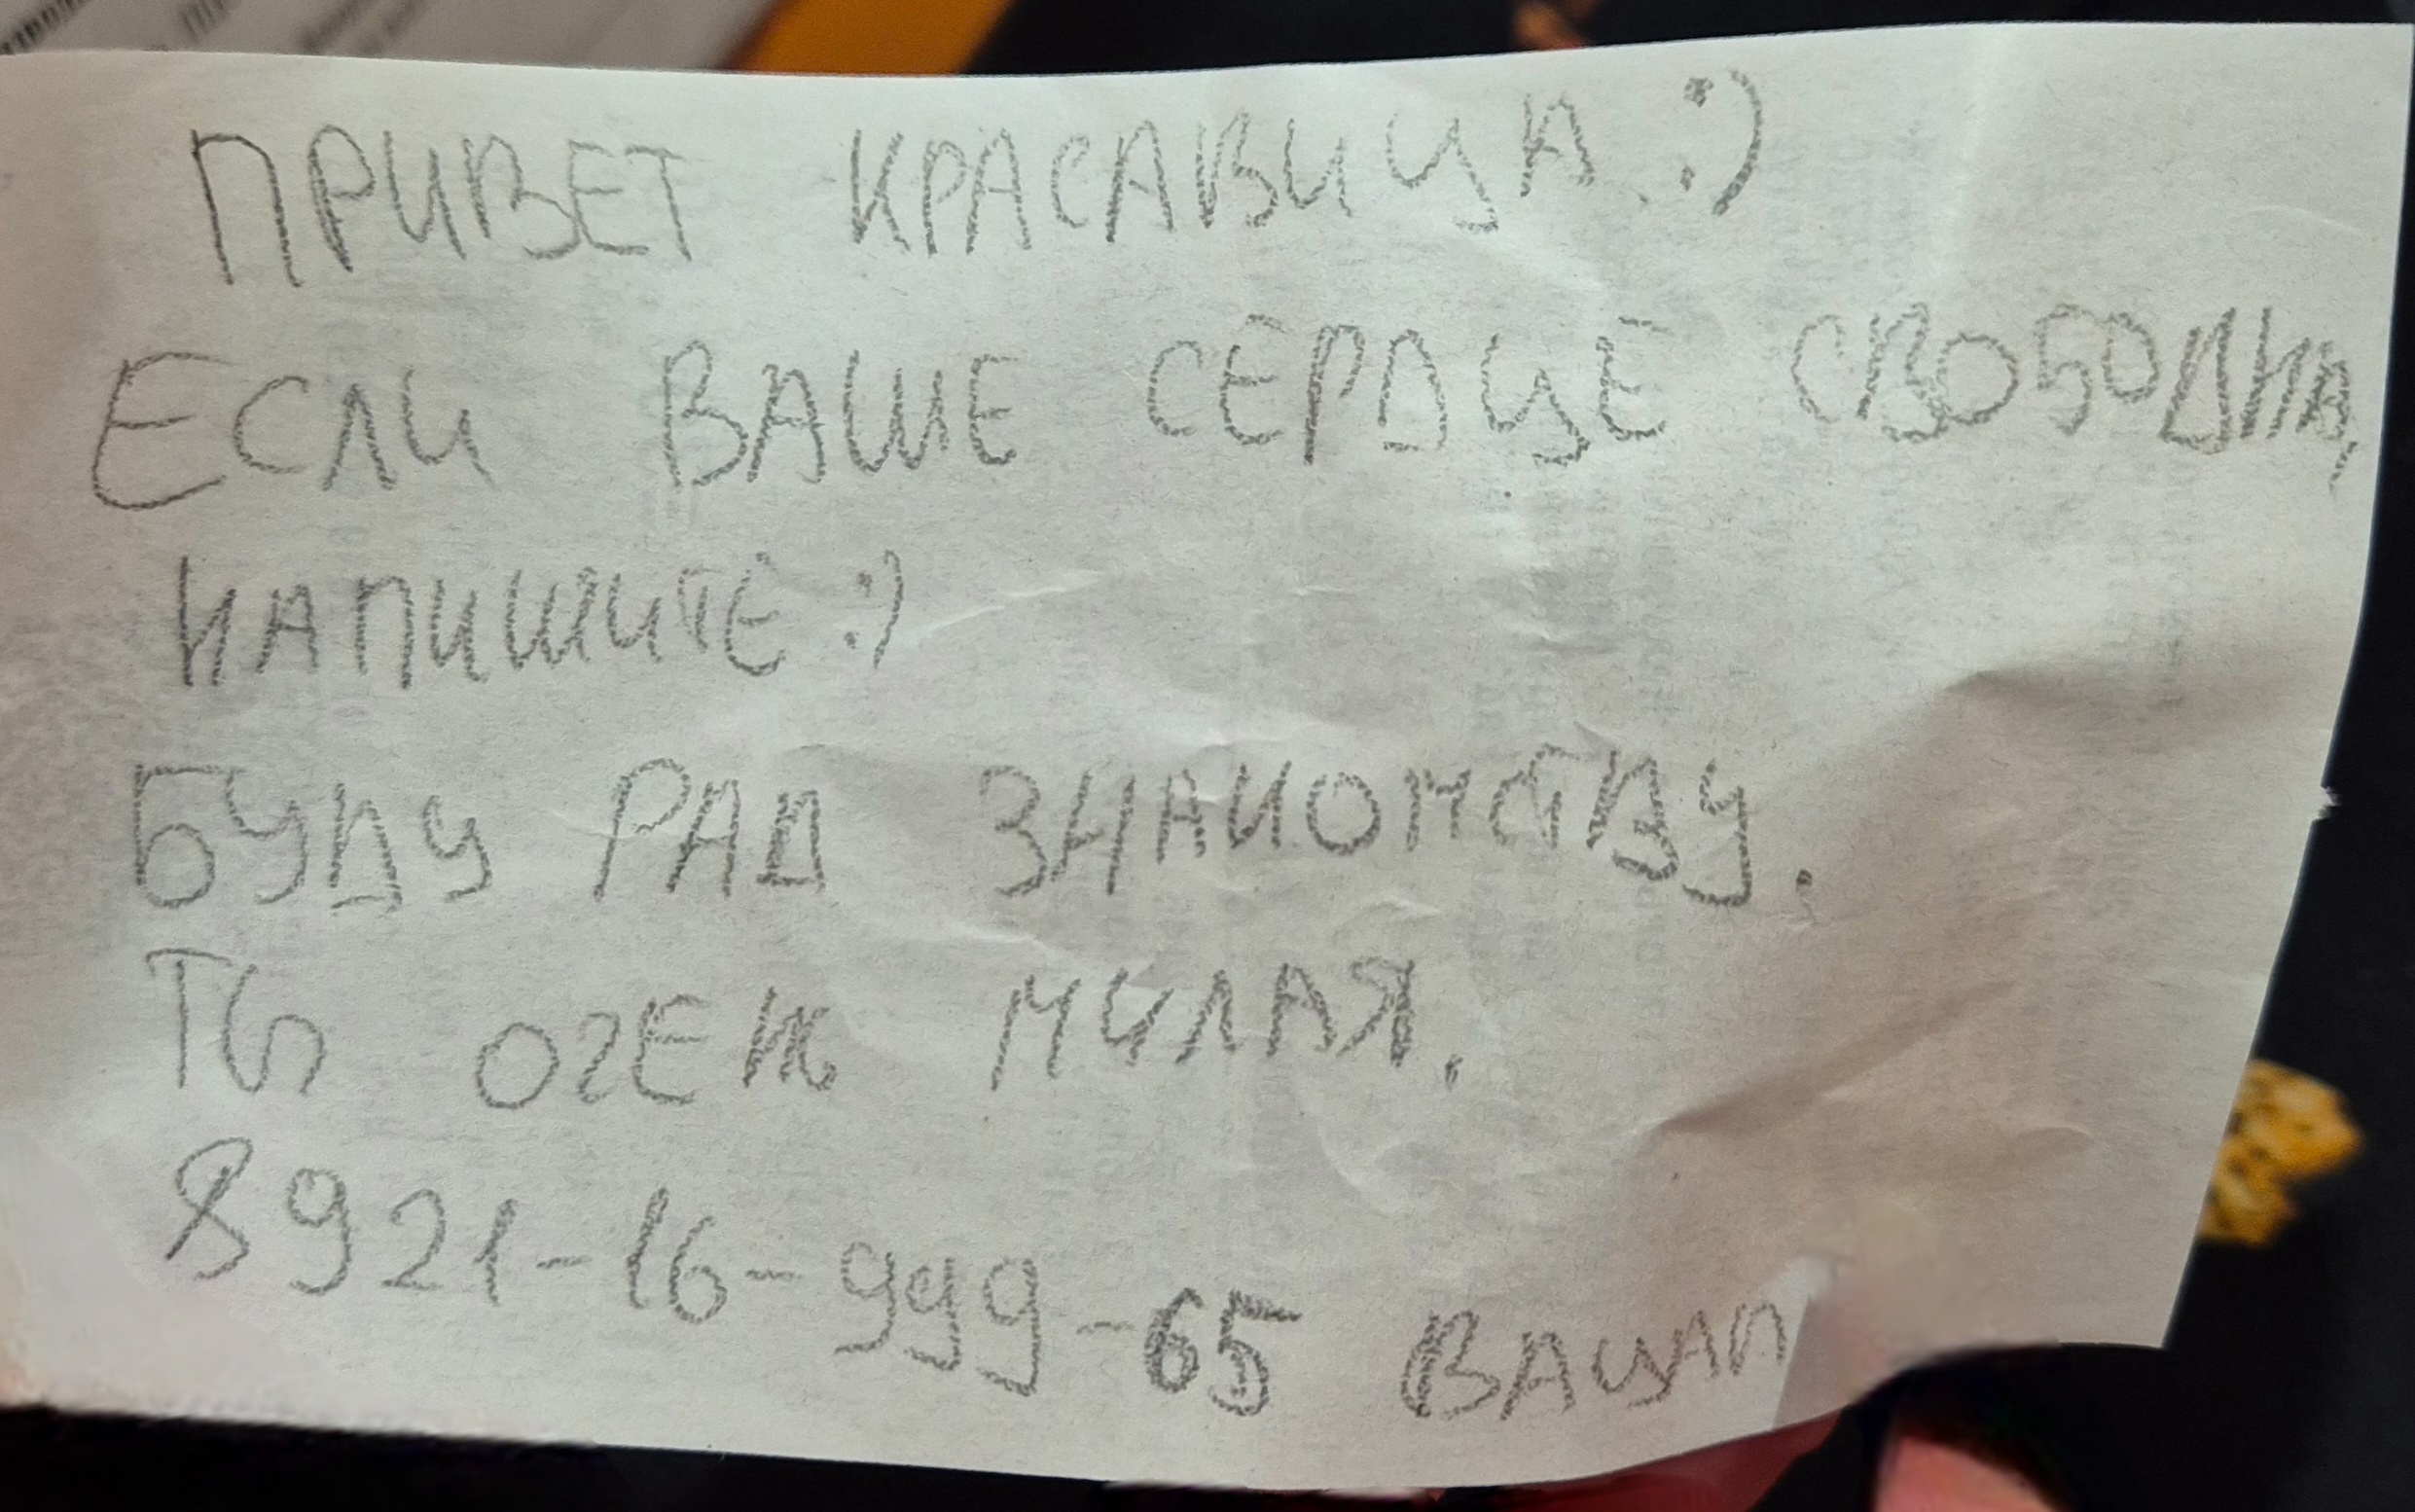 ПРИВЕТ КРАСАВИЦА :)
ЕСЛИ ВАШЕ СЕРДЦЕ СВОБОДНА,
НАПИШИТЕ :)
БУДУ РАД ЗНАКОМСТВУ.
ТЫ ОЧЕНЬ МИЛАЯ.
8921-16-999-65 ВАЦАП